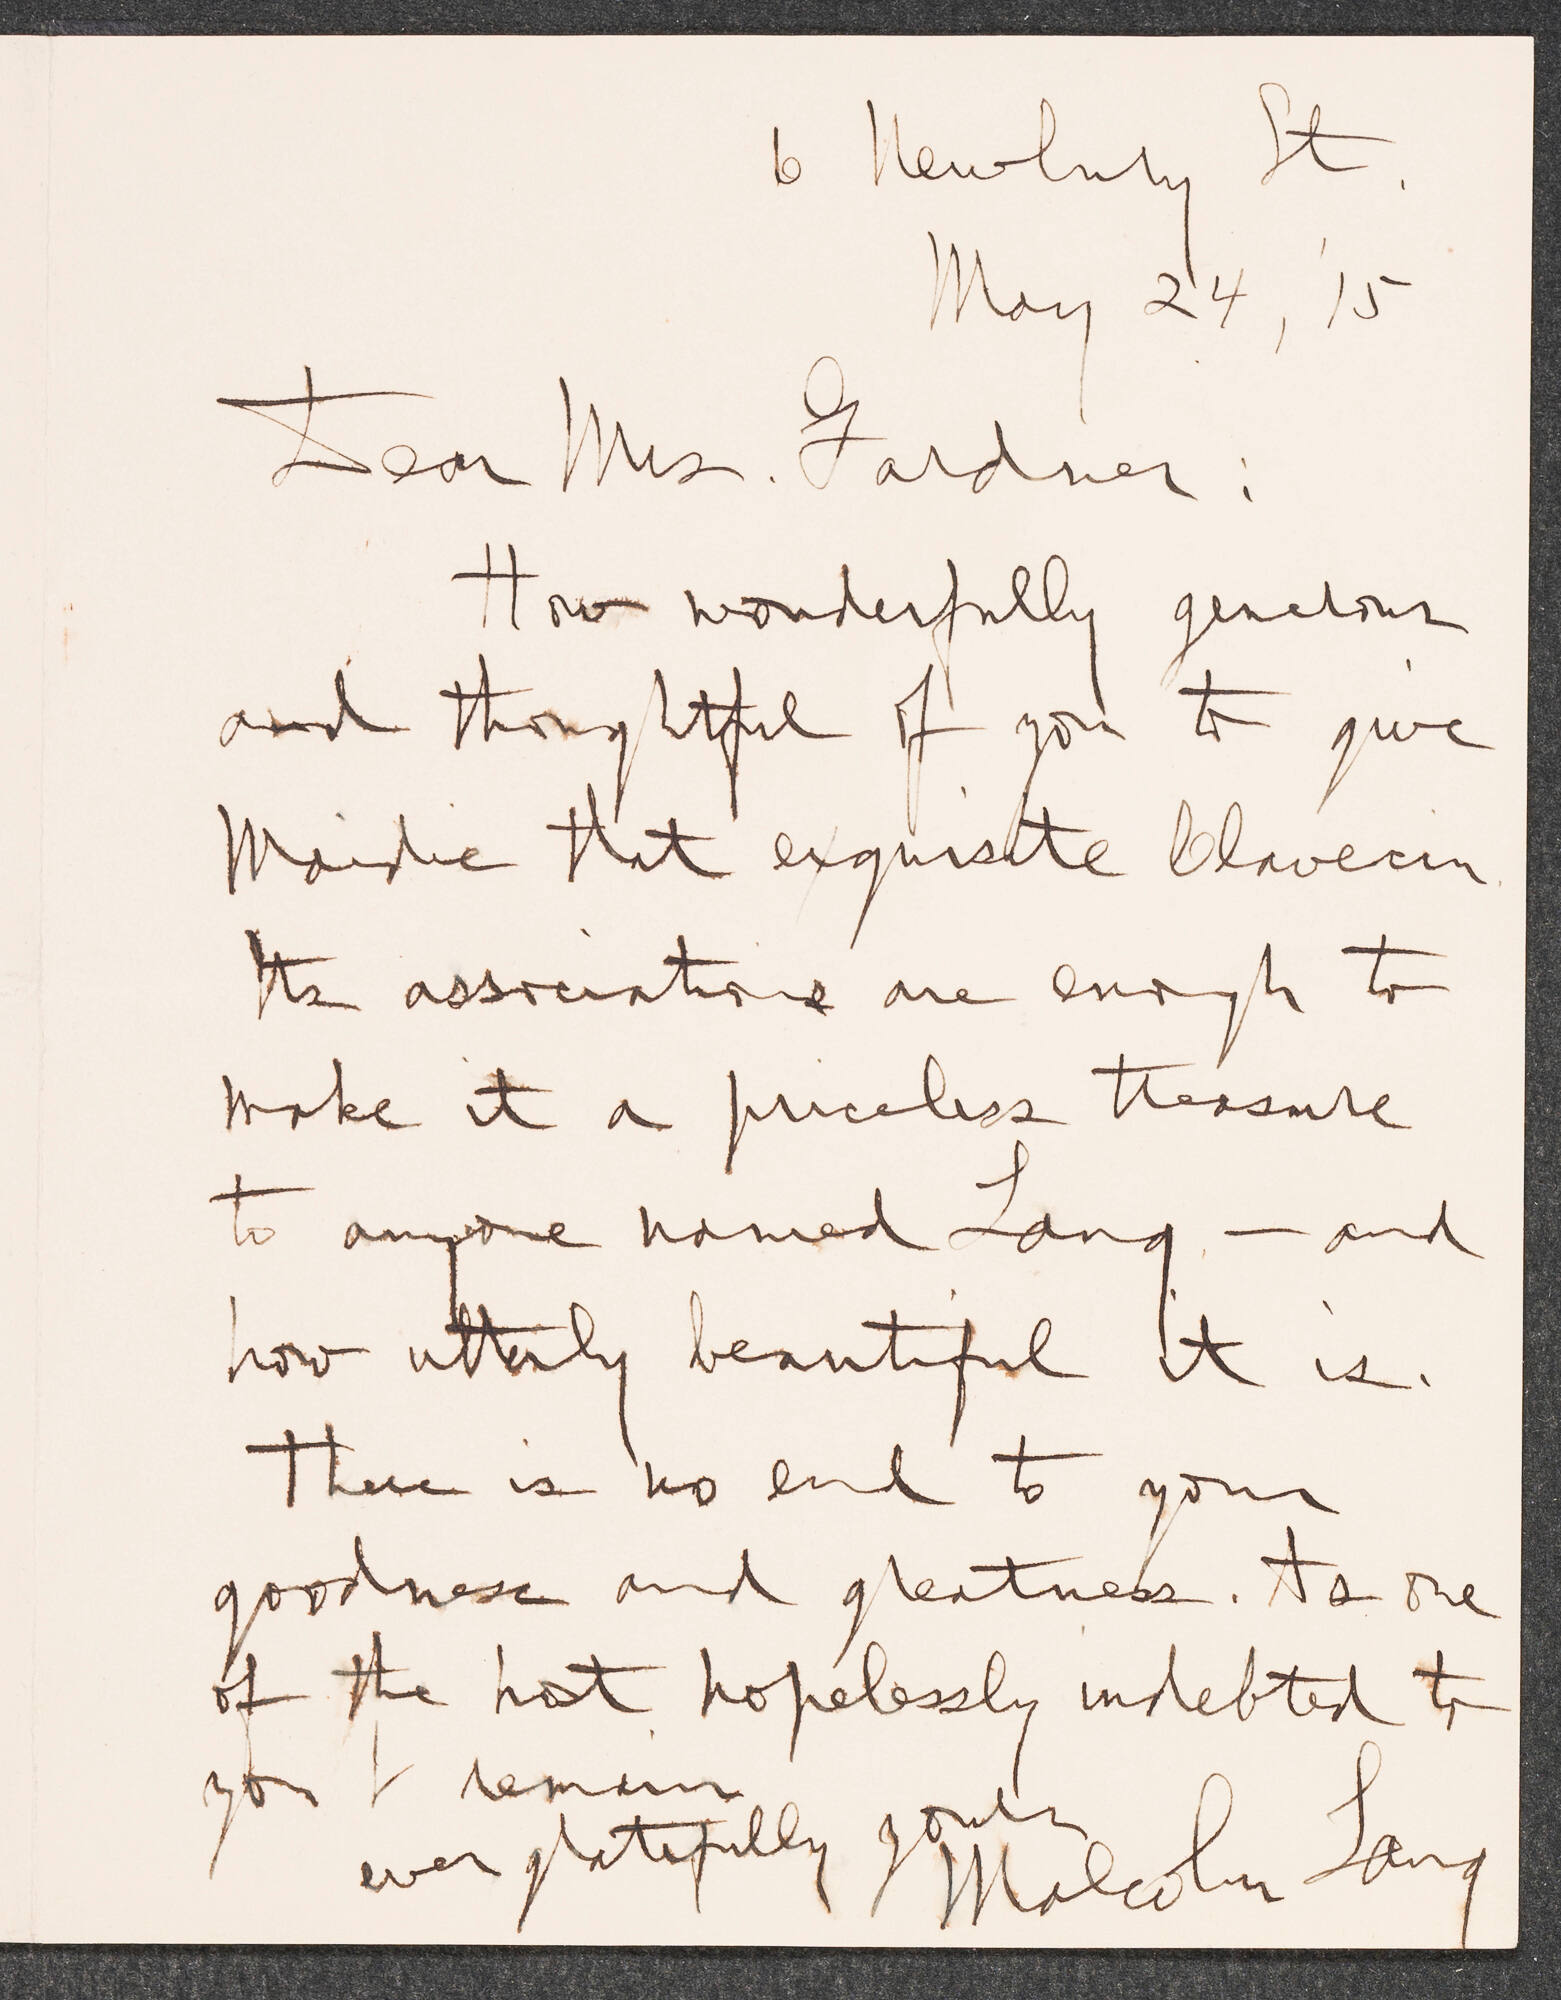 6 Newbury St.
May 24, '15
Dear Mrs. Gardner:
How wonderfully generous
and thoughtful of you to give
Maidie that exquisite Clavecin.
Its associations are enough to
make it a priceless treasure
to anyone named Lang — and
how utterly beautiful it is.
There is no end to your
goodness and greatness. As one
of the host hopelessly indebted to
you I remain
ever gratefully yours
Malcolm Lang